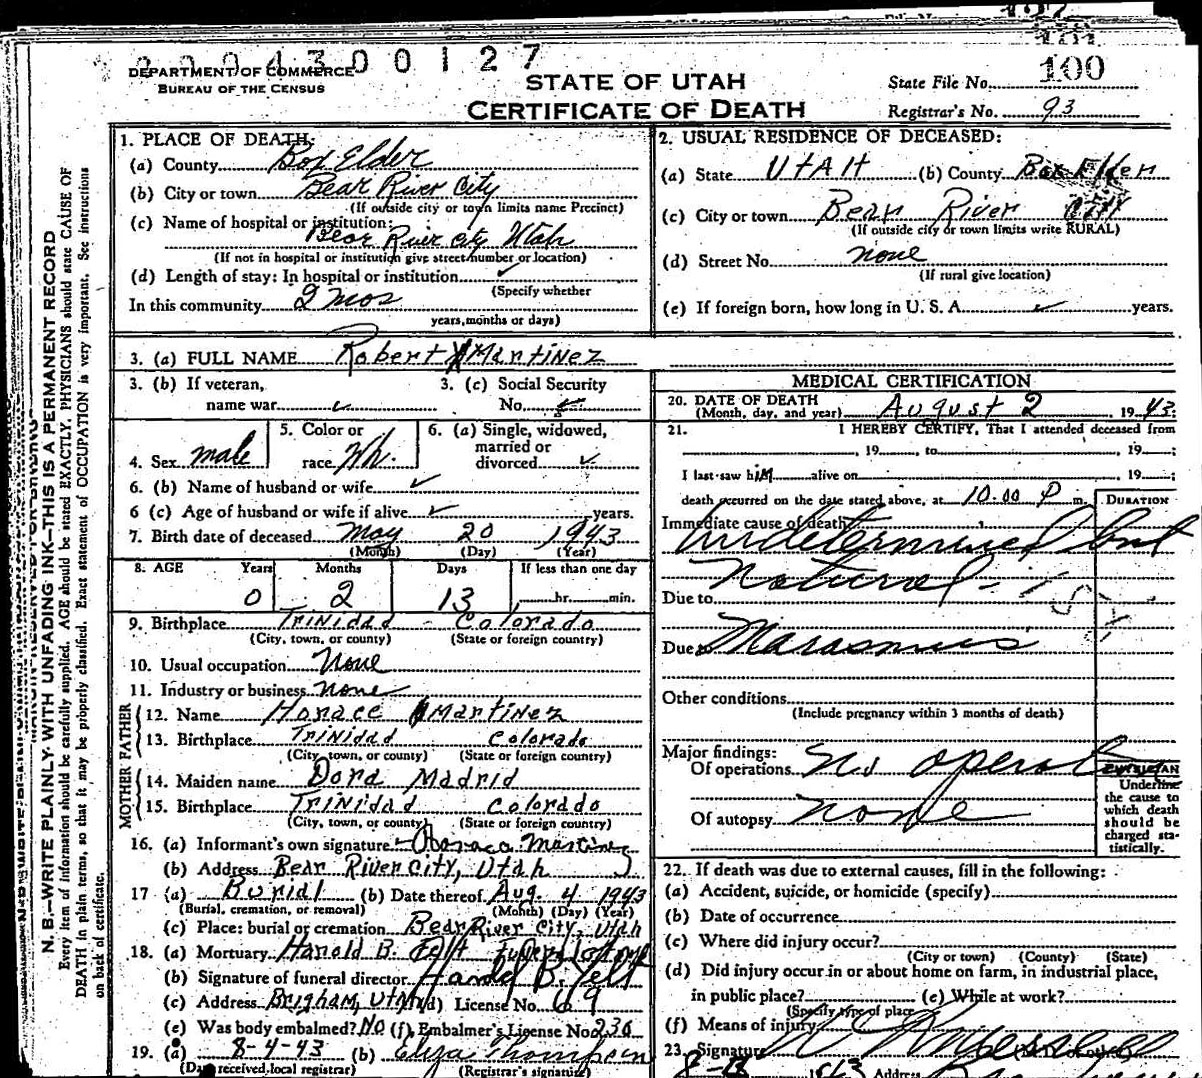 2004300127
DEPARTMENT OF COMMERCE
BUREAU OF THE CENSUS
STATE OF UTAH
CERTIFICATE OF DEATH
State File No. 100
Registrar's No. 93
N. B.—WRITE PLAINLY WITH UNFADING INK—THIS IS A PERMANENT RECORD
Every item of information should be carefully supplied. AGE should be stated EXACTLY. PHYSICIANS should state CAUSE OF
DEATH in plain terms, so that it may be properly classified. Exact statement of OCCUPATION is very important. See instructions
on back of certificate.
1. PLACE OF DEATH:
(a) County Box Elder
(b) City or town Bear River City
(If outside city or town limits name Precinct)
(c) Name of hospital or institution:
Bear River City Utah
(If not in hospital or institution give street number or location)
(d) Length of stay: In hospital or institution ✓
(Specify whether
In this community 2 mos
years, months or days)
2. USUAL RESIDENCE OF DECEASED:
(a) State UtAH (b) County Box Elder
(c) City or town Bear River City
(If outside city or town limits write RURAL)
(d) Street No. none
(If rural give location)
(e) If foreign born, how long in U. S. A. ✓ years.
3. (a) FULL NAME Robert Martinez
3. (b) If veteran,
name war ✓
3. (c) Social Security
No. ✓
4. Sex male
5. Color or
race Wh.
6. (a) Single, widowed,
married or
divorced ✓
6. (b) Name of husband or wife ✓
6 (c) Age of husband or wife if alive ✓ years.
7. Birth date of deceased May 20 1943
(Month) (Day) (Year)
8. AGE Years Months Days If less than one day
0 2 13 hr. min.
9. Birthplace Trinidad - Colorado
(City, town, or county) (State or foreign country)
10. Usual occupation None
11. Industry or business none
FATHER
12. Name Horace Martinez
13. Birthplace Trinidad Colorado
(City, town, or county) (State or foreign country)
MOTHER
14. Maiden name Dora Madrid
15. Birthplace Trinidad Colorado
(City, town, or county) (State or foreign country)
16. (a) Informant's own signature Horace Martinez
(b) Address Bear River City, Utah
17 (a) Burial (b) Date thereof Aug. 4 1943
(Burial, cremation, or removal) (Month) (Day) (Year)
(c) Place: burial or cremation Bear River City, Utah
18. (a) Mortuary Harold B. Felt Funeral Home
(b) Signature of funeral director Harold B. Felt
(c) Address Brigham, Utah (d) License No. 69
(e) Was body embalmed? No (f) Embalmer's License No. 236
19. (a) 8-4-43 (b) Eliza Thompson
(Date received local registrar) (Registrar's signature)
MEDICAL CERTIFICATION
20. DATE OF DEATH
(Month, day, and year) August 2, 1943
21. I HEREBY CERTIFY, That I attended deceased from
, 19 , to , 19 ;
I last saw him alive on 19 ;
death occurred on the date stated above, at 10:00 P m.
DURATION
Immediate cause of death
Undetermined but
Natural -
Due to
Due to Marasmus
Other conditions
(Include pregnancy within 3 months of death)
Major findings:
Of operations No operat
Of autopsy none
PHYSICIAN
Underline
the cause to
which death
should be
charged sta-
tistically.
22. If death was due to external causes, fill in the following:
(a) Accident, suicide, or homicide (specify)
(b) Date of occurrence
(c) Where did injury occur?
(City or town) (County) (State)
(d) Did injury occur in or about home on farm, in industrial place,
in public place? (e) While at work?
(Specify type of place
(f) Means of injury
23. Signature
Address